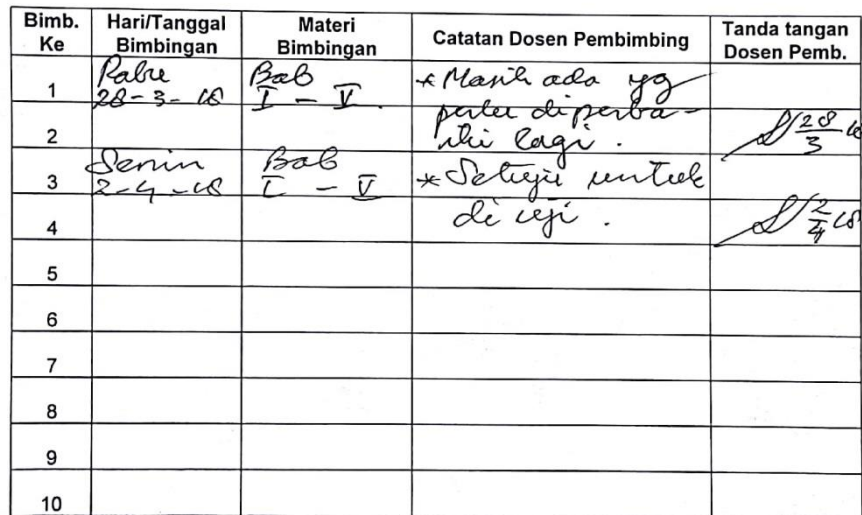 Bimb. Ke Hari/Tanggal Bimbingan Materi Bimbingan Catatan Dosen Pembimbing Tanda tangan Dosen Pemb.
Rabu Bab * Masih ada yg
1 28-3-18 I - V perlu diperba-
2 iki lagi. 28/3 18
Senin Bab
3 2-4-18 I - V * Setuju untuk
4 di uji. 2/4 18
5
6
7
8
9
10